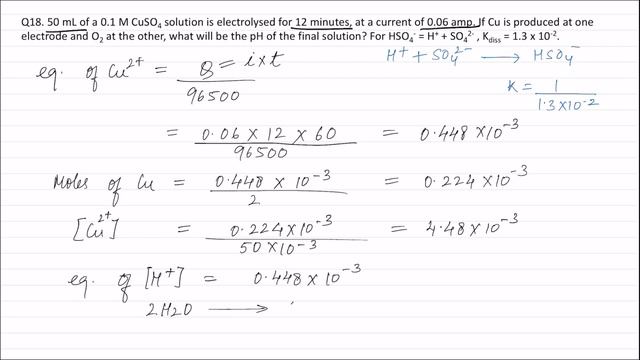 Q18. 50 mL of a 0.1 M CuSO₄ solution is electrolysed for 12 minutes, at a current of 0.06 amp. If Cu is produced at one
electrode and O₂ at the other, what will be the pH of the final solution? For HSO₄⁻ = H⁺ + SO₄²⁻ , Kdiss = 1.3 x 10⁻².
H⁺ + SO₄²⁻ ⟶ HSO₄⁻
eq. of Cu²⁺ = Q = i×t / 96500
K = 1 / 1.3×10⁻²
= 0.06 × 12 × 60 / 96500 = 0.448 ×10⁻³
Moles of Cu = 0.448 × 10⁻³ / 2 = 0.224 ×10⁻³
[Cu²⁺] = 0.224×10⁻³ / 50×10⁻³ = 4.48×10⁻³
eq. of [H⁺] = 0.448 × 10⁻³
2H2O ⟶